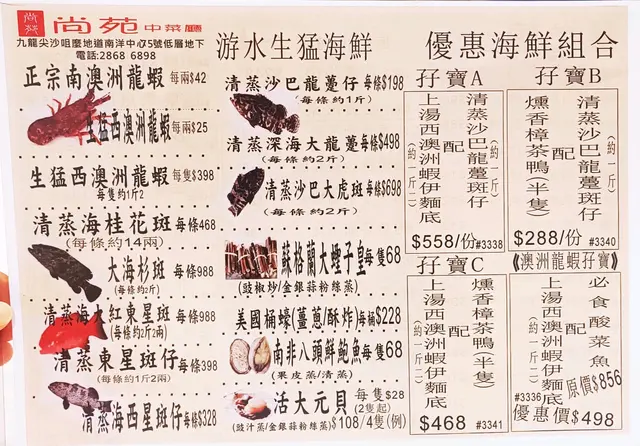 尚苑
尚苑中菜廳
九龍尖沙咀麼地道南洋中心5號低層地下
電話:2868 6898
游水生猛海鮮
優惠海鮮組合
正宗南澳洲龍蝦 每兩$42
生猛西澳洲龍蝦 每兩$25
生猛西澳洲龍蝦 每隻$398
每隻約1斤2
清蒸海桂花斑 每條468
(每條約14兩)
大海杉斑 每條988
(每條約2斤)
清蒸海水紅東星斑 每條988
(每條約2斤2兩)
清蒸東星斑仔 每條398
(每條約1斤2兩)
清蒸海西星斑仔 每條$328
清蒸沙巴龍躉仔 每條$198
(每條約1斤)
清蒸深海大龍躉 每條$498
(每條約2斤)
清蒸沙巴大虎斑 每條$698
(每條約2斤)
蘇格蘭大蟶子皇 每隻68
(豉椒炒/金銀蒜粉絲蒸)
美國桶蠔(薑蔥/酥炸) 每桶$228
南非八頭鮮鮑魚 每隻68
(果皮蒸/清蒸)
活大元貝 每隻$28
(2隻起)
(豉汁蒸/金銀蒜粉絲蒸) $108/4隻(例)
孖寶A
清蒸沙巴龍躉斑仔
(約一斤)
配
上湯西澳洲蝦伊麵底
(約一斤二)
$558/份 #3338
孖寶B
清蒸沙巴龍躉斑仔
(約一斤)
配
燻香樟茶鴨(半隻)
$288/份 #3340
孖寶C
燻香樟茶鴨(半隻)
配
上湯西澳洲蝦伊麵底
(約一斤二)
$468 #3341
《澳洲龍蝦孖寶》
必食酸菜魚
配
上湯西澳洲蝦伊麵底
(約一斤二)
#3336
原價$856
優惠價$498